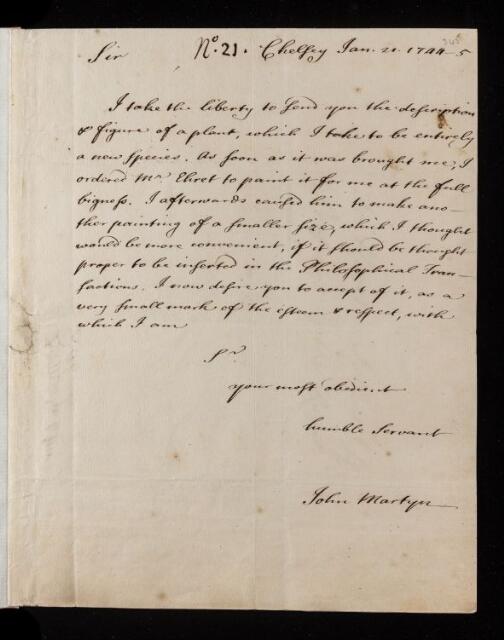 Sir No. 21. Chelsey Jan. 21. 1744-5
I take the liberty to send you the description
& figure of a plant, which I take to be entirely
a new species. As soon as it was brought me, I
ordered Mr Ehret to paint it for me at the full
bigness. I afterwards caused him to make ano-
ther painting of a smaller size, which I thought
would be more convenient, if it should be thought
proper to be inserted in the Philosophical Tran-
sactions. I now desire you to accept of it, as a
very small mark of the esteem & respect, with
which I am
Sr
your most obedient
humble Servant
John Martyn